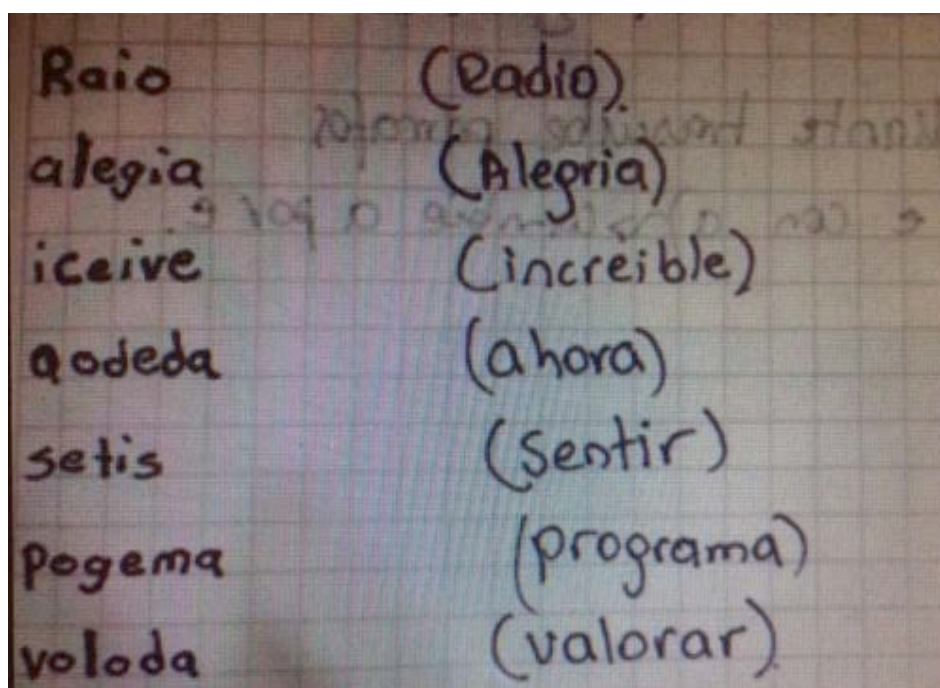 Raio (Radio).
alegia (Alegria)
iceive (increible)
aodeda (ahora)
setis (sentir)
pogema (programa)
voloda (valorar)